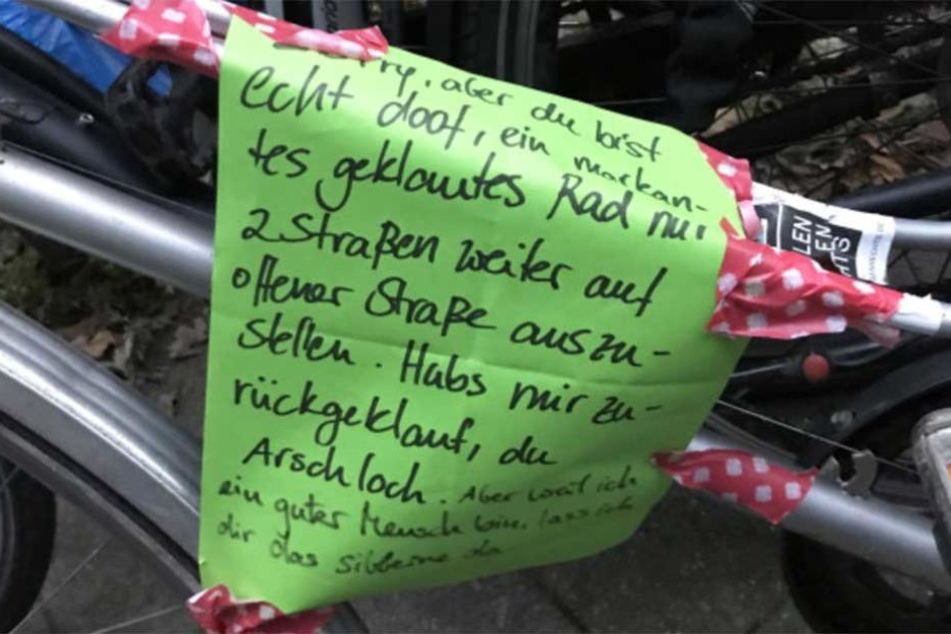 rry, aber du bist
echt doof, ein markan-
tes geklautes Rad nur
2 Straßen weiter auf
offener Straße auszu-
stellen. Habs mir zu-
rückgeklaut, du
Arschloch. Aber weil ich
ein guter Mensch bin, lass ich
dir das silberne da
LEN
EN
HTS